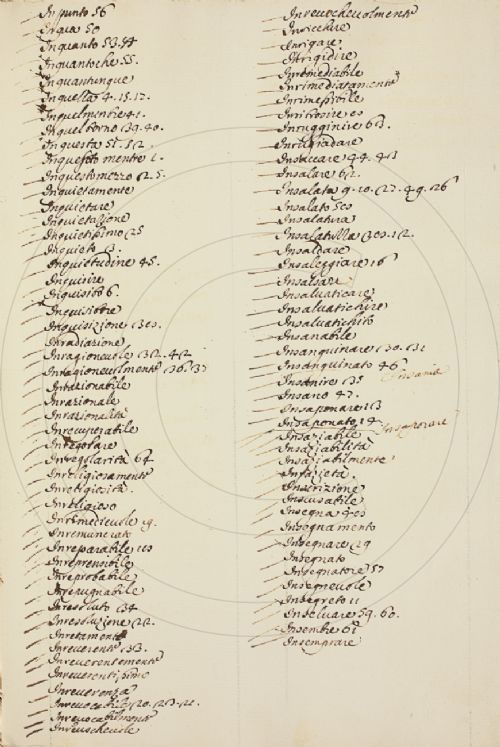 In punto 56
In qua 50
In quanto 53.54
Inquantoche 55.
Inquantunque
In quella 4.15.17.
Inquel mentre 41.
In quel torno 139.40.
In questa 51.52.
In questo mentre 1.
In questo mezzo 12.5.
Inquietamente
Inquietare
Inquietazione
Inquietissimo 125
Inquieto 13.
Inquietudine 45.
Inquisire
Inquisito 6.
Inquisitore
Inquisizione 130.
Inradiazione
Inragionevole 312. 412
Inragionevolmente 136.37
Inrazionabile
Inrazionale
Inrazionalità
Inrecuperabile
Inregolare
Inregolarità 64.
Inreligiosamente
Inreligiosità
Inreligioso
Inremedievole 19.
Inremunerato
Inreparabile
Inreprensibile
Inreprobabile
Inrepugnabile
Inresoluto 134
Inresoluzione 122.
Inretamente
Inreverente 133.
Inreverentemente
Inreverentissimo
Inreverenza
Inrevocabile
Inrevocabilmente
Inrevochevole
Inrevochevolmente
Inricchire
Inrigare
Inrigidire
Inremediabile
Inrimediatamente
Inritrosire
Inrugginire 613.
Inrugiadare
Insaccare 44. 413
Insalare 612.
Insalata 9.10.127.49.26
Insalato
Insalatura
Insalatuzza
Insaldare
Insaleggiare 16
Insalsare
Insalvaticare
Insalvatichire
Insalvatichito
Insanabile
Insanguinare 130.131
Insanguinato 46
Insania
Insanire 135
Insano 47.
Insaponare 113
Insaponato 14.
Insaporare
Insaziabile
Insaziabilità
Insaziabilmente
Insazietà
Inscrizione
Inscusabile
Insegna
Insegnamento
Insegnare 129
Insegnato
Insegnatore 57
Insegnevole
Insegreto 11
Inselvare 59.60.
Insembre 61
Insemprare